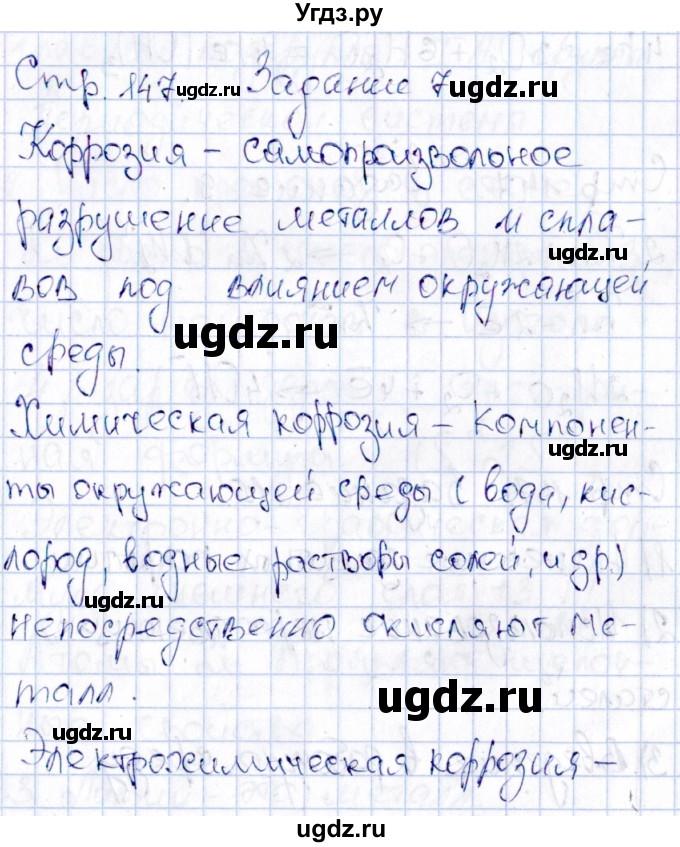 Угдз.ру
Стр. 147. Задание 7
Коррозия – самопроизвольное
разрушение металлов и спла-
вов под влиянием окружающей
среды.
Химическая коррозия – Компонен-
ты окружающей среды (вода, кис-
лород, водные растворы солей, и др.)
непосредственно окисляют ме-
талл.
Электрохимическая коррозия –
ugdz.ru
ugdz.ru
ugdz.ru
ugdz.ru
ugdz.ru
ugdz.ru
ugdz.ru
ugdz.ru
ugdz.ru
ugdz.ru